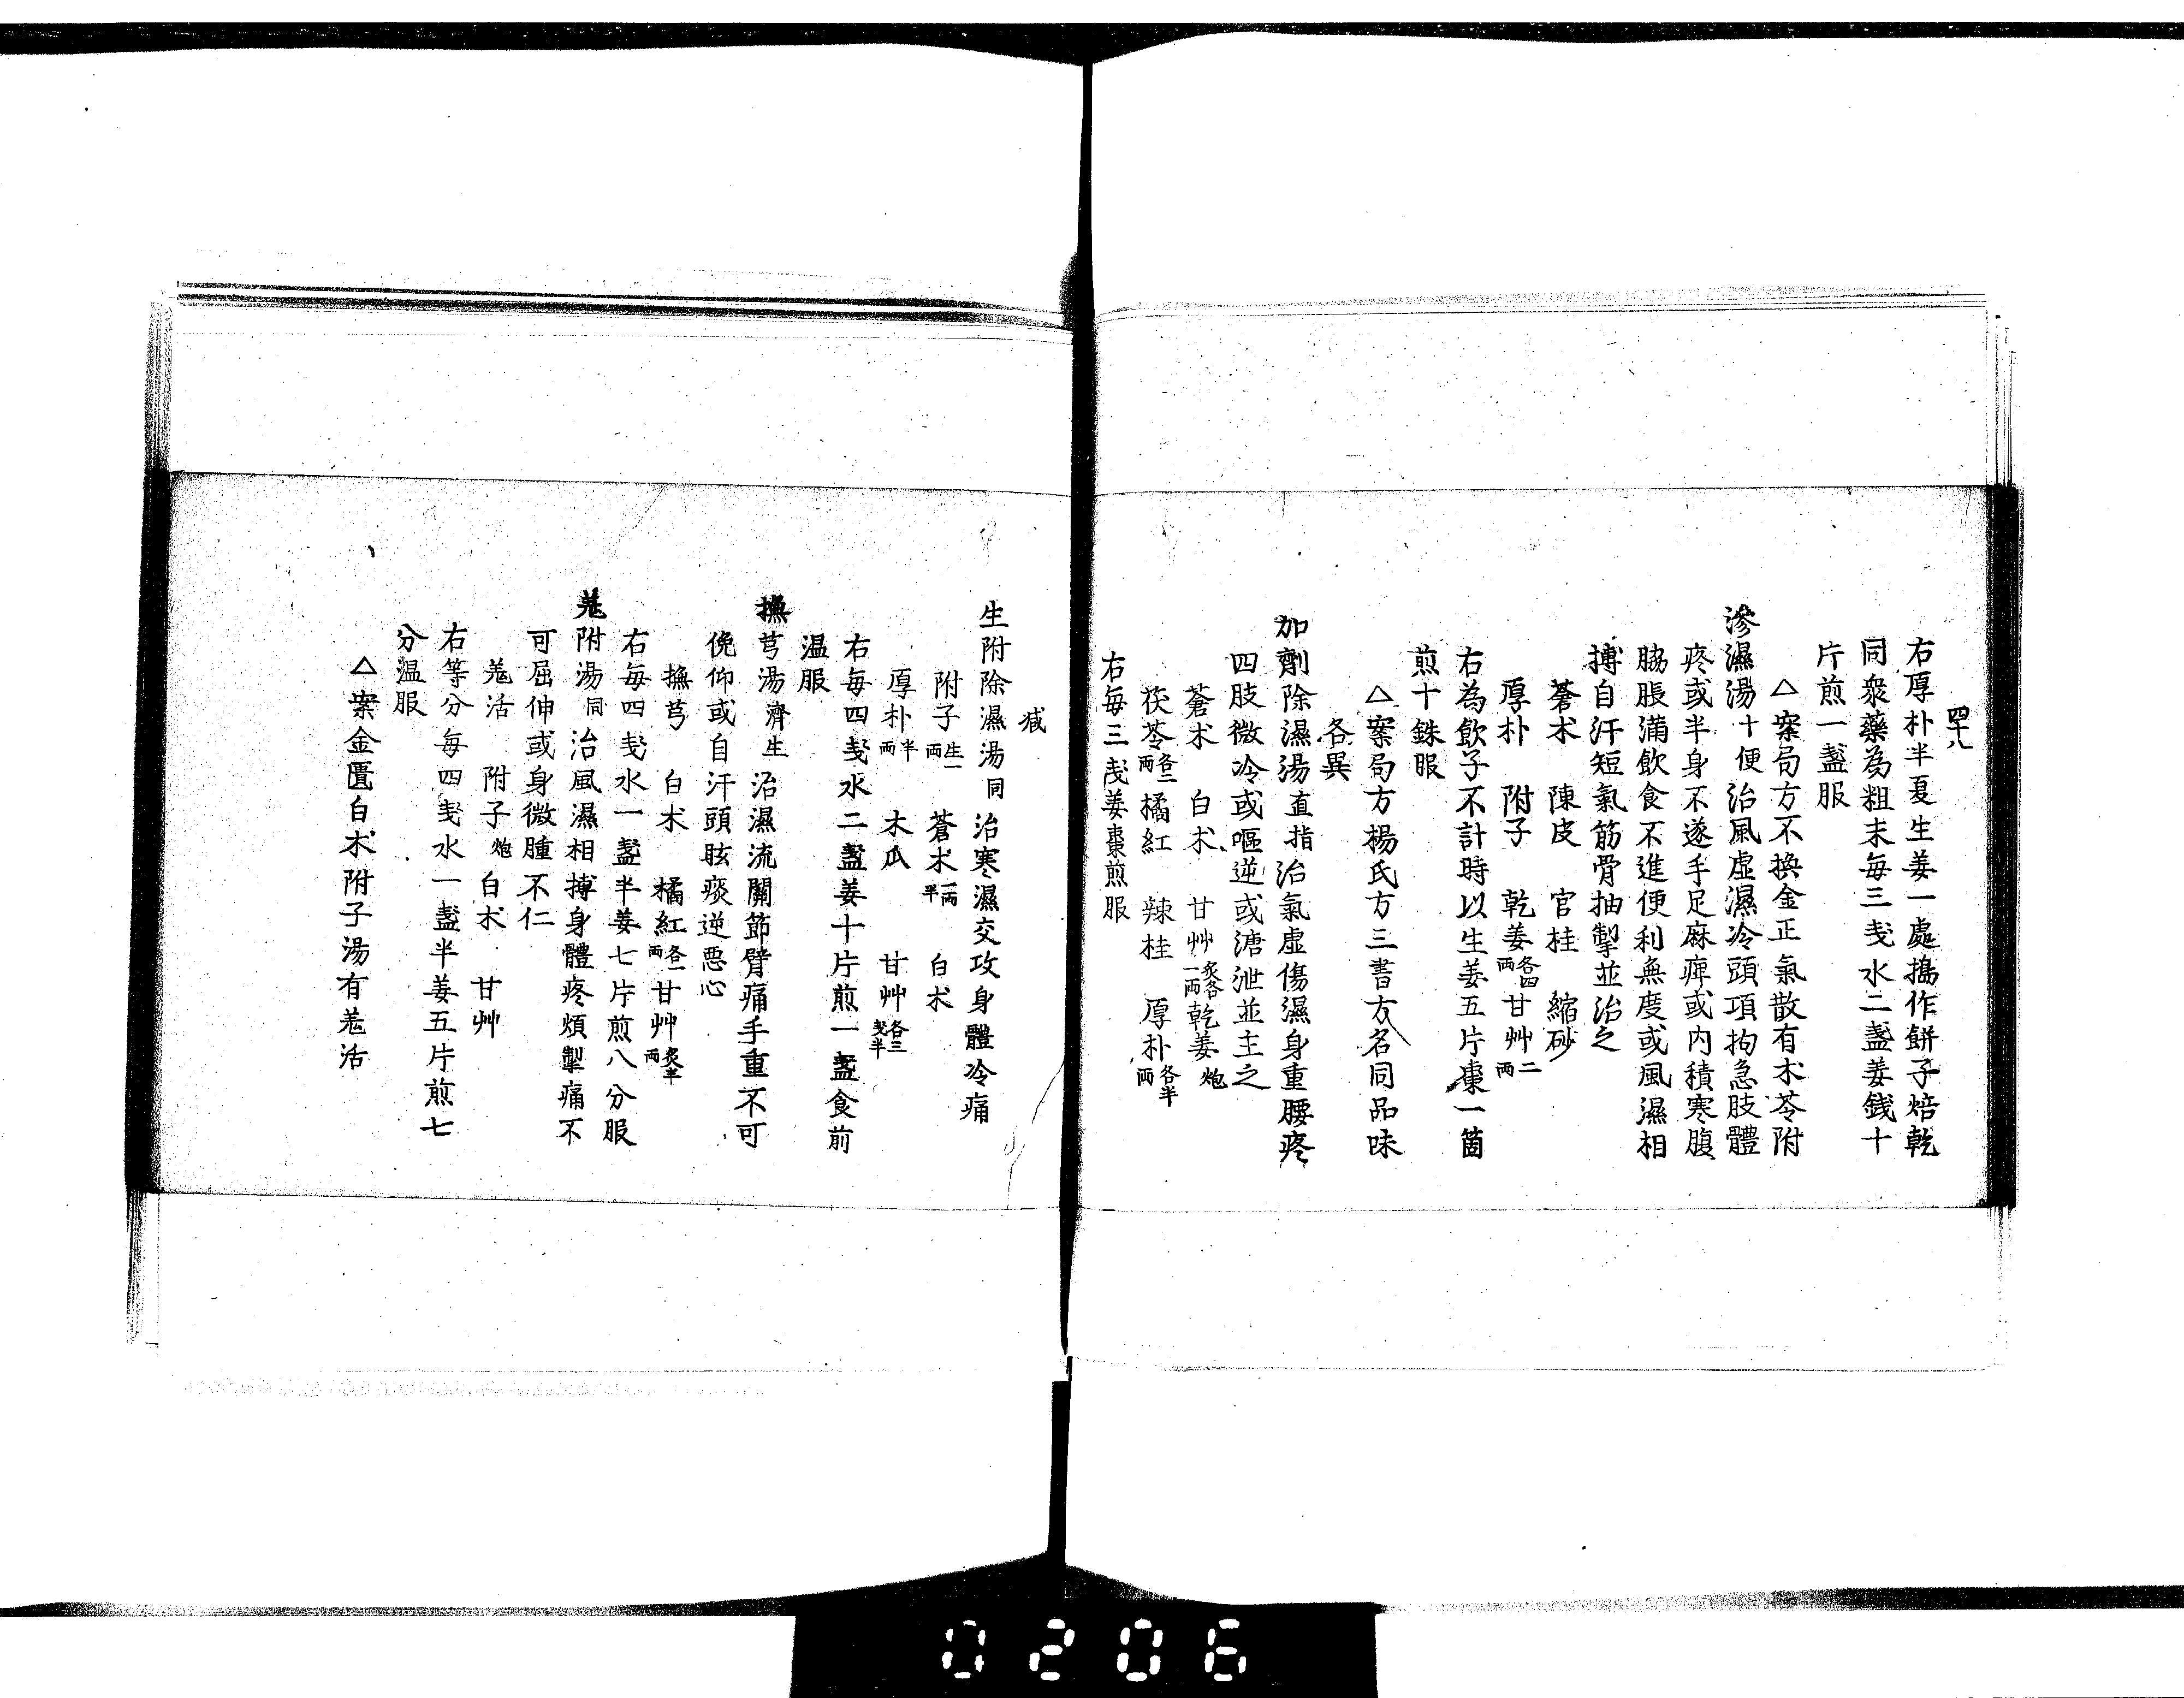 四十八
右厚朴半夏生姜一處搗作餅子焙乾
同衆藥為粗末每三戔水二盞姜錢十
片煎一盞服
△案局方不換金正氣散有木苓附
滲濕湯十便治風虛濕冷頭項拘急肢體
疼或半身不遂手足麻痺或内積寒腹
脇脹満飲食不進便利無度或風濕相
搏自汗短氣筋骨抽掣並治之
蒼朮 陳皮 官桂 縮砂
厚朴 附子 乾姜各四両 甘艸二両
右為飲子不計時以生姜五片棗一箇
煎十銖服
△案局方楊氏方三書方名同品味
各異
加劑除濕湯直指治氣虛傷濕身重腰疼
四肢微冷或嘔逆或溏泄並主之
蒼朮 白朮 甘艸炙各一両 乾姜炮
茯苓各二両 橘紅 辣桂 厚朴各半両
右每三戔姜棗煎服
減
生附除濕湯同治寒濕交攻身體冷痛
附子生一両 蒼朮一両半 白朮
厚朴半両 木瓜 甘艸各三戔半
右每四戔水二盞姜十片煎一盞食前
温服
撫芎湯濟生治濕流關節臂痛手重不可
俛仰或自汗頭眩痰逆悪心
撫芎 白朮 橘紅各一両 甘艸炙半両
右每四戔水一盞半姜七片煎八分服
羗附湯同治風濕相搏身體疼煩掣痛不
可屈伸或身微腫不仁
羗活 附子炮 白朮 甘艸
右等分每四戔水一盞半姜五片煎七
分温服
△案金匱白朮附子湯有羗活
0206